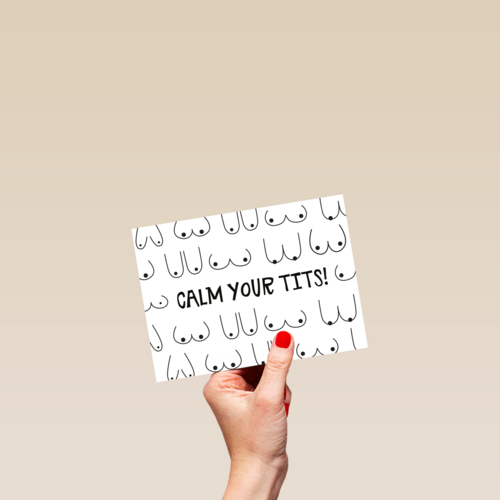 CALM YOUR TITS!